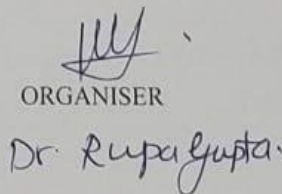 ORGANISER
Dr. Rupa Gupta.